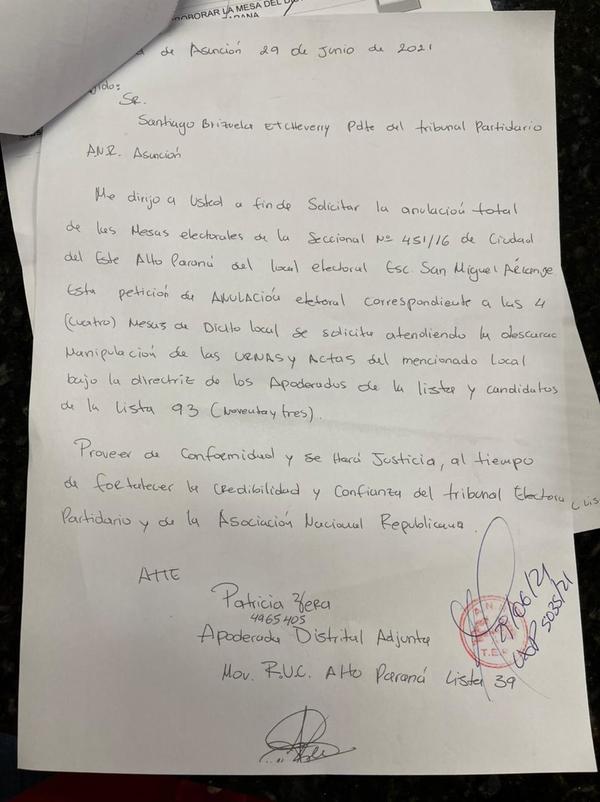 ORBORAR LA MESA DEL D
PARANA
de Asunción 29 de Junio de 2021
Sr.
Santiago Brizuela Etcheverry Pdte del tribunal Partidario
A.N.R. Asunción
Me dirijo a Usted a fin de Solicitar la anulación total
de las Mesas electorales de la Seccional Nº 451/16 de Ciudad
del Este Alto Paraná del local electoral Esc. San Miguel
Esta petición de ANULACIÓN eletoral correspondiente a las 4
(cuatro) Mesas de Dicho local se solicita atendiendo la descarac
Manipulación de las URNAS y Actas del mencionado local
bajo la directriz de los Apoderados de la lista y candidatos
de la Lista 93 (Noventa y tres).
Proveer de Conformidad y se Hará Justicia, al tiempo
de fortalecer la credibilidad y Confianza del tribunal Electora
Partidario y de la Asociación Nacional Republicana.
ATTE
Patricia Vera
4965405
Apoderada Distrital Adjunta
Mov. R.U.C. Alto Paraná Lista 39
A.N.R.
T.E.P.
29/06/21
5035/21